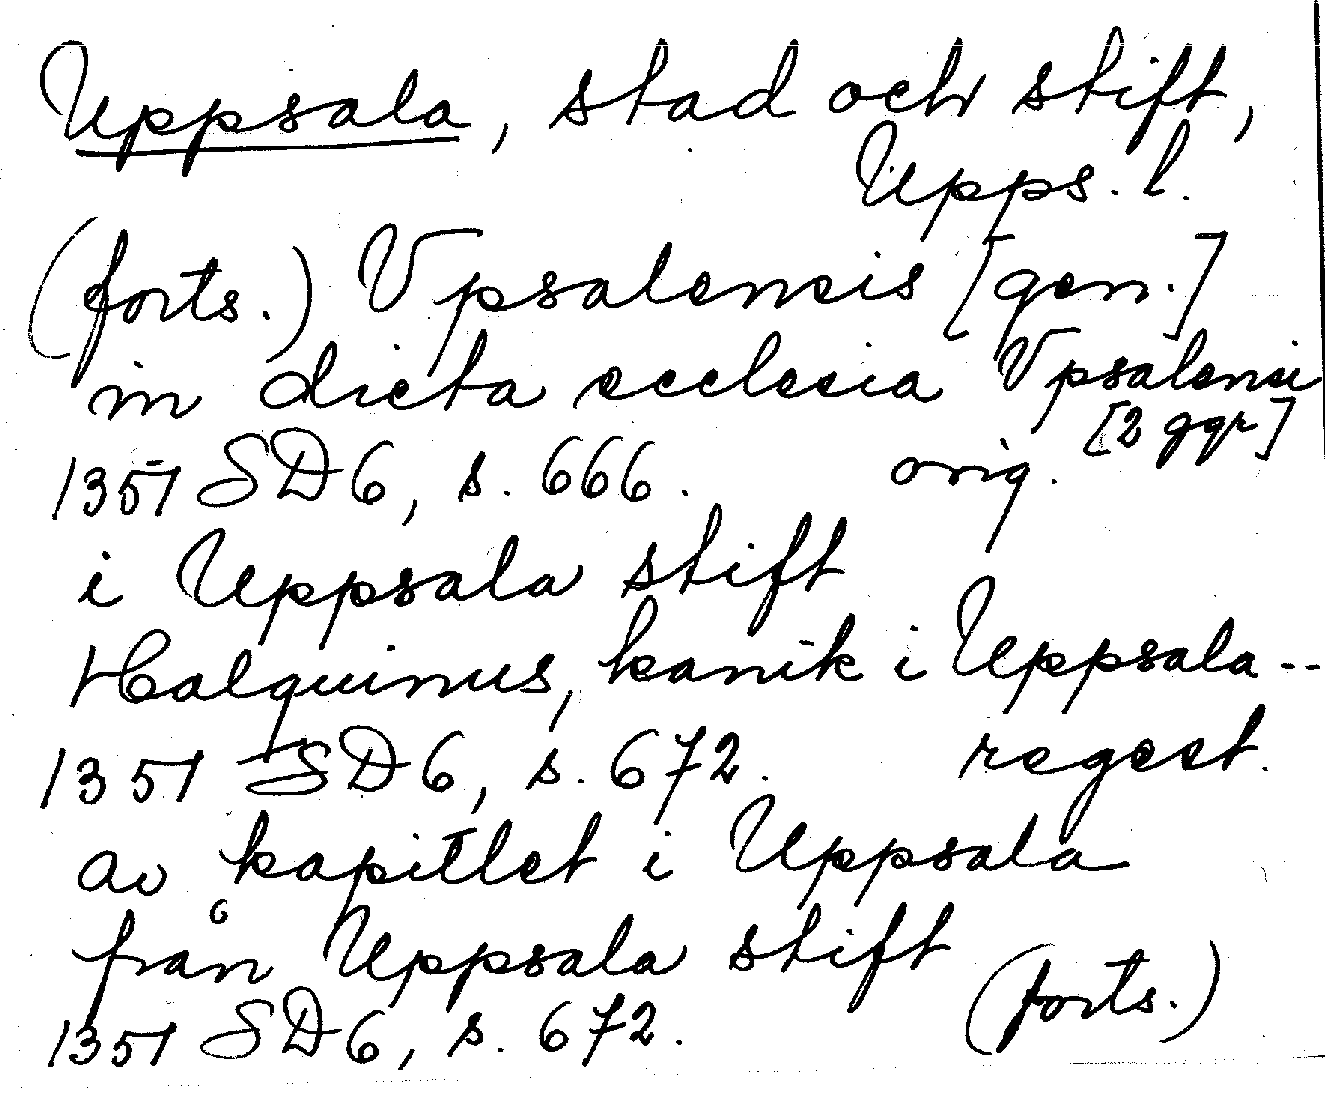 Uppsala, stad och stift,
Upps. l.
(forts.) Vpsalensis [gen.]
in dicta ecclesia Vpsalensi
[2 ggr]
1351 SD6, s. 666. orig.
i Uppsala stift
Halquinus, kanik i Uppsala --
1351 SD6, s. 672. regest.
av kapitlet i Uppsala
från Uppsala stift
1351 SD6, s. 672. (forts.)